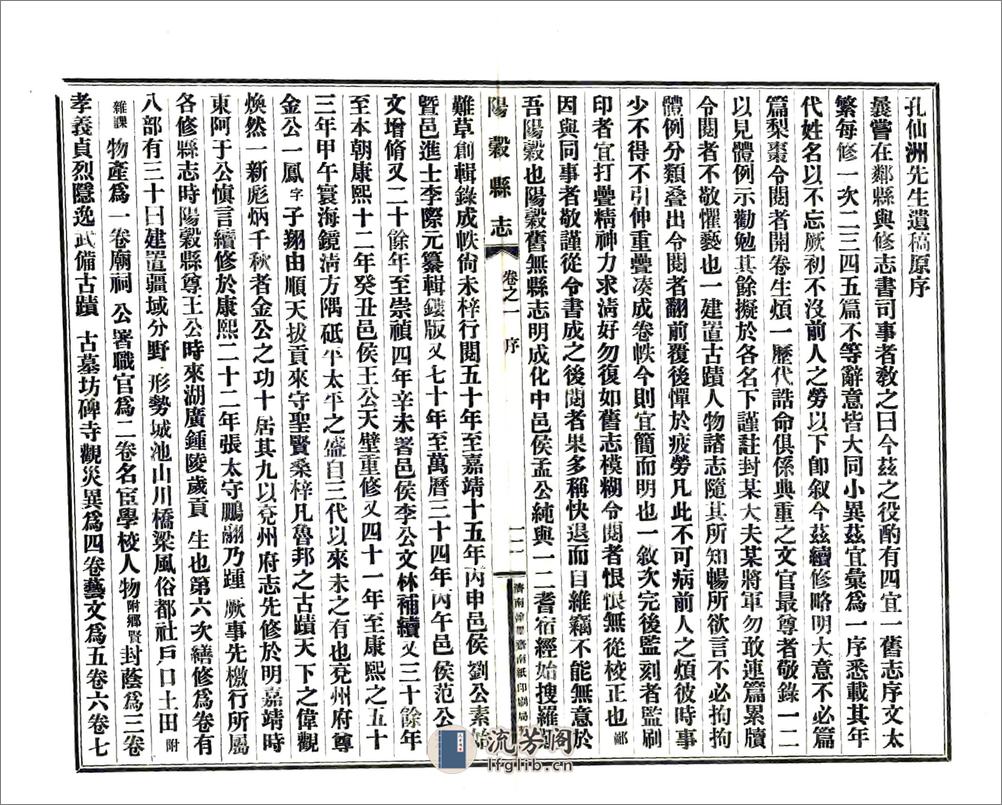 孔仙洲先生遺稿原序
曩嘗在鄰縣與修志書司事者敎之曰今兹之役酌有四宜一舊志序文太
繁每修一次二三四五篇不等辭意皆大同小異茲宜彙爲一序悉載其年
代姓名以不忘厥初不沒前人之勞以下卽叙今茲續修略明大意不必篇
篇梨棗令閱者開卷生煩一歷代誥命俱係典重之文官最尊者敬錄一二
以見體例示勸勉其餘擬於各名下謹註封某大夫某將軍勿敢連篇累牘
令閱者不敬懼褻也一建置古蹟人物諸志隨其所知暢所欲言不必拘拘
體例分類叠出令閱者翻前覆後憚於疲勞凡此不可病前人之煩彼時事
少不得不引伸重疊湊成卷帙今則宜簡而明也一敘次完後監刻者監刷
印者宜打疊精神力求淸好勿復如舊志模糊令閱者恨恨無從校正也鄙
因與同事者敬謹從令書成之後閱者果多稱快退而自維竊不能無意於
吾陽穀也陽穀舊無縣志明成化中邑侯孟公純與一二耆宿經始搜羅
陽穀縣志
卷之一
序
濟南翰墨齋南紙印刷局
難草創輯錄成帙尙未梓行閱五十年至嘉靖十五年丙申邑侯劉公素始
暨邑進士李際元纂輯鏤版又七十年至萬曆三十四年丙午邑侯范公
文增脩又二十餘年至崇禎四年辛未署邑侯李公文林補續又三十餘年
至本朝康熙十二年癸丑邑侯王公天壁重修又四十一年至康熙之五十
三年甲午寰海鏡淸方隅砥平太平之盛自三代以來未之有也兗州府尊
金公一鳳字子翔由順天拔貢來守聖賢桑梓凡魯邦之古蹟天下之偉觀
煥然一新彪炳千秋者金公之功十居其九以兗州府志先修於明嘉靖時
東阿于公愼言續修於康熙二十二年張太守鵬翮乃踵厥事先檄行所屬
各修縣志時陽穀縣尊王公時來湖廣鍾陵歲貢生也第六次繕修爲卷有
八部有三十曰建置疆域分野形勢城池山川橋梁風俗都社戶口土田附
雜課物產爲一卷廟祠公署職官爲二卷名宦學校人物附鄉賢封蔭爲三卷
孝義貞烈隱逸武備古蹟古墓坊碑寺觀災異爲四卷藝文爲五卷六卷七
流芳阁
lfglib.cn